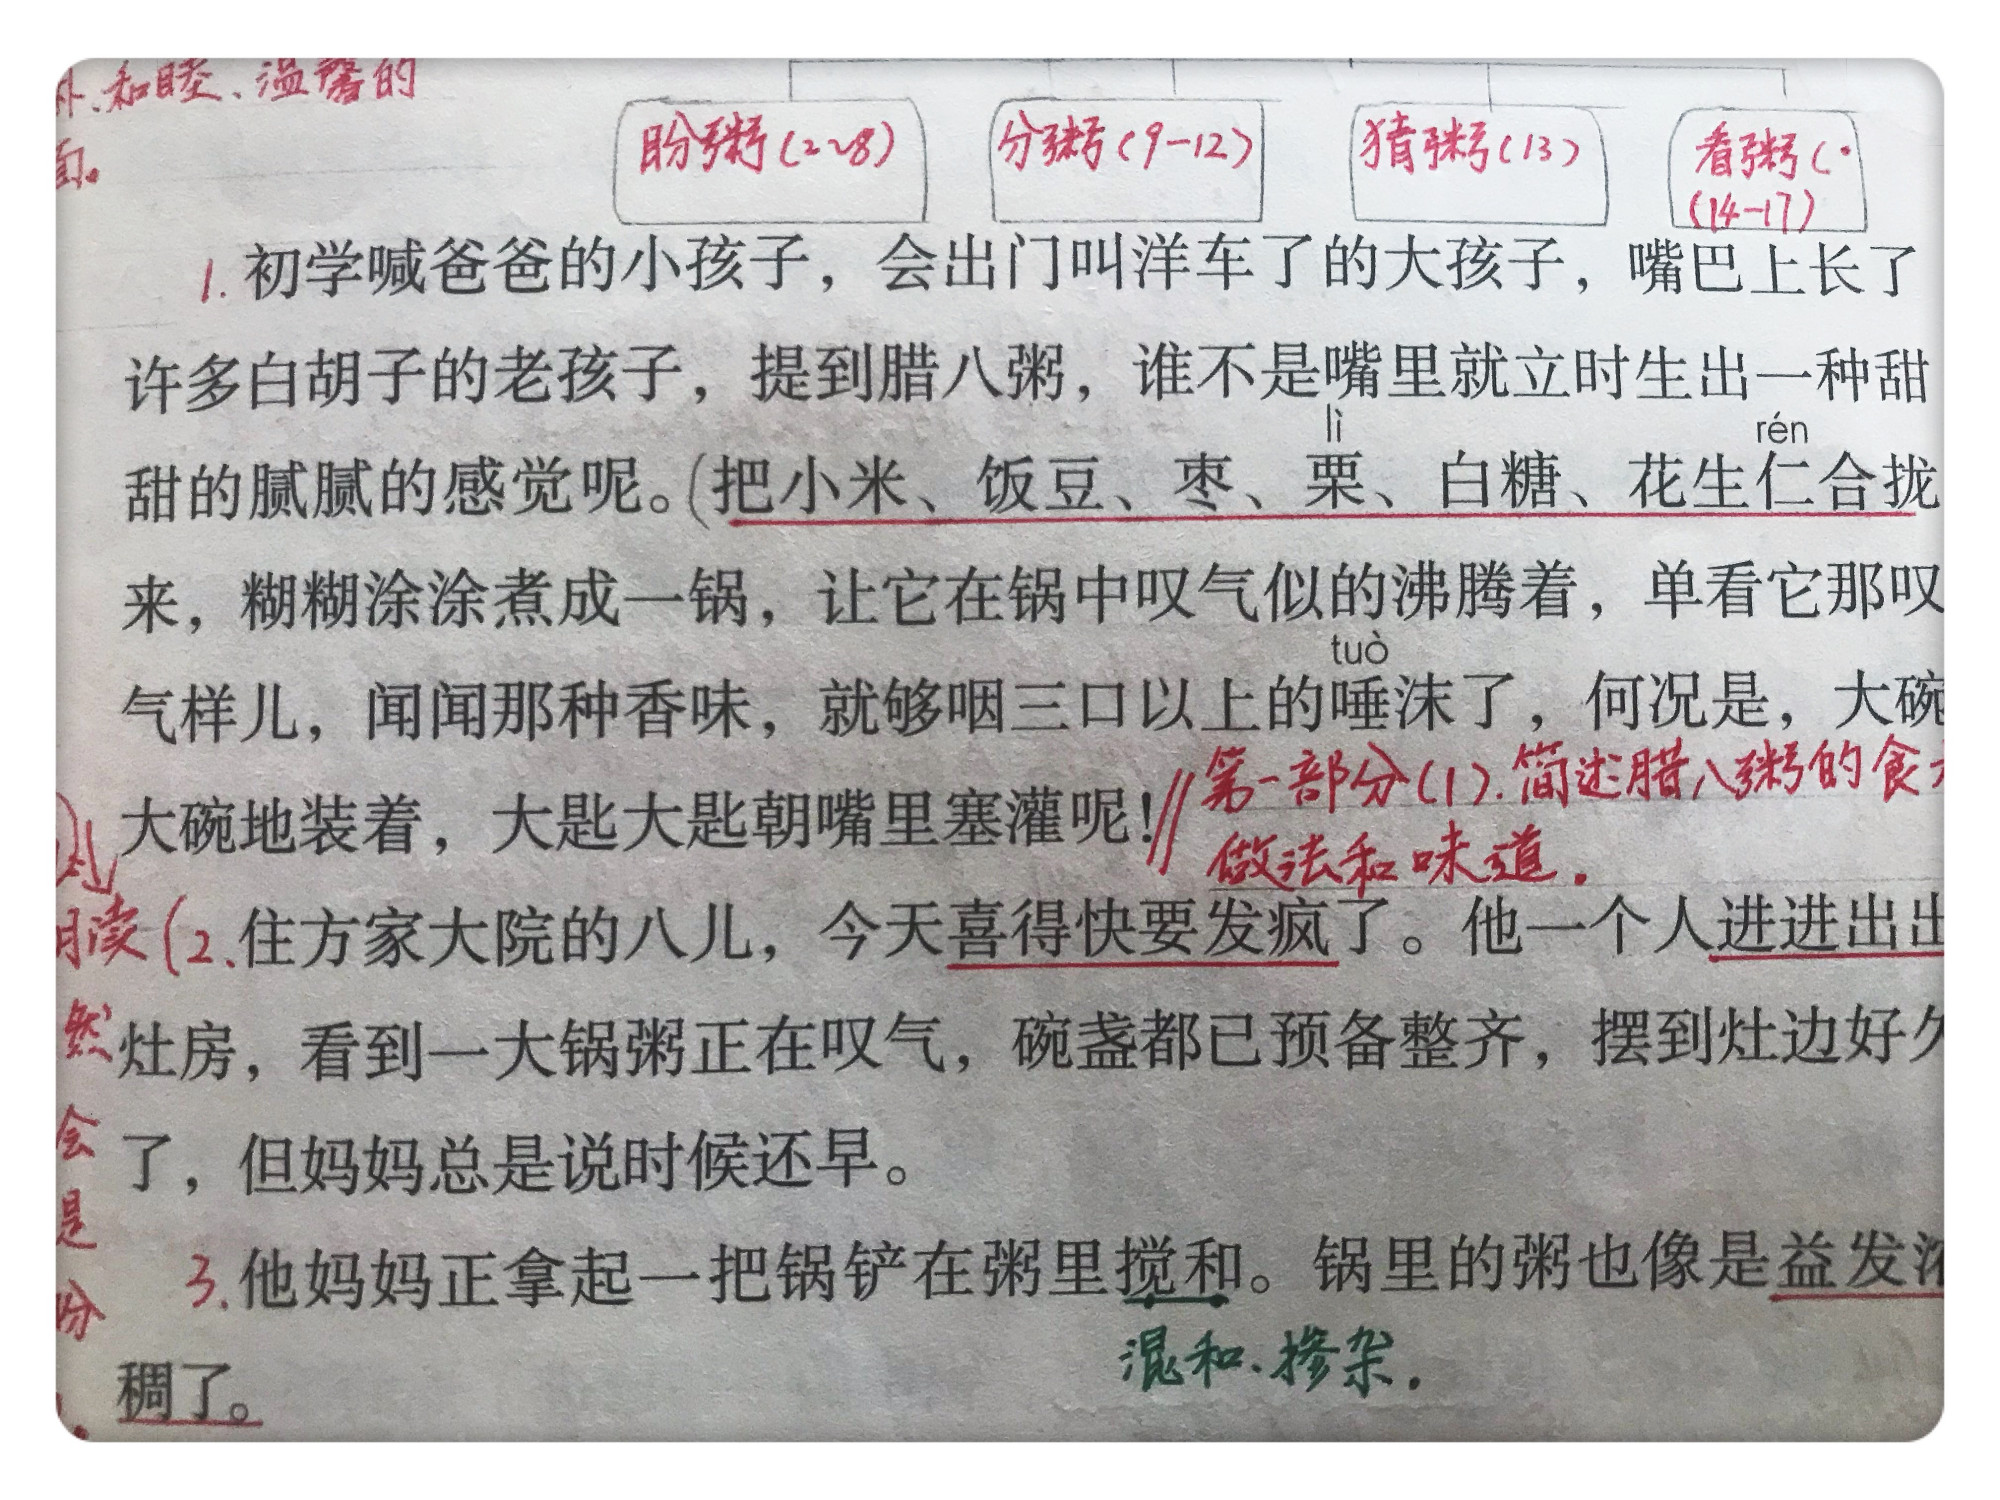 、和睦、温馨的
面。
盼粥(2~8)
分粥(9-12)
猜粥(13)
看粥(
(14-17)
1.初学喊爸爸的小孩子，会出门叫洋车了的大孩子，嘴巴上长了
许多白胡子的老孩子，提到腊八粥，谁不是嘴里就立时生出一种甜
lì rén
甜的腻腻的感觉呢。(把小米、饭豆、枣、栗、白糖、花生仁合拢
来，糊糊涂涂煮成一锅，让它在锅中叹气似的沸腾着，单看它那叹
tuò
气样儿，闻闻那种香味，就够咽三口以上的唾沫了，何况是，大碗
第一部分(1).简述腊八粥的食
大碗地装着，大匙大匙朝嘴里塞灌呢!
做法和味道.
读(2.住方家大院的八儿，今天喜得快要发疯了。他一个人进进出出
然
灶房，看到一大锅粥正在叹气，碗盏都已预备整齐，摆到灶边好久
会
了，但妈妈总是说时候还早。
是
3.他妈妈正拿起一把锅铲在粥里搅和。锅里的粥也像是益发浓
混和、掺杂.
稠了。